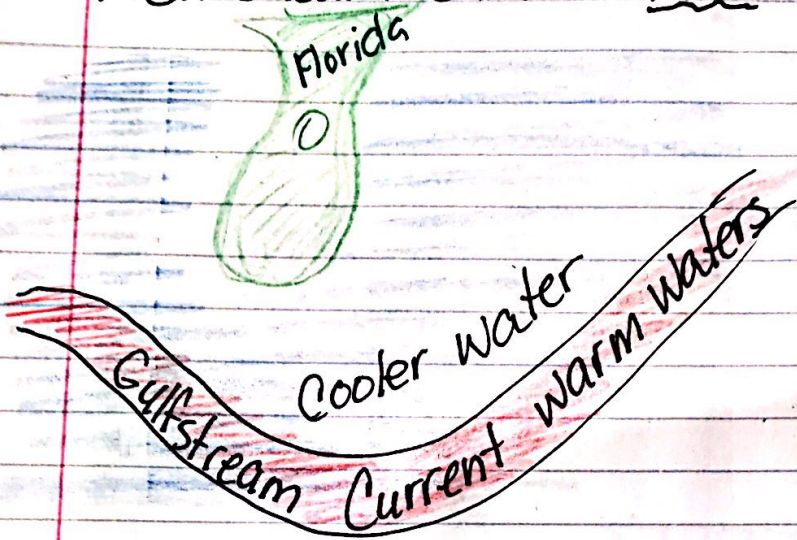 Florida
Cooler water
Gulfstream Current warm waters